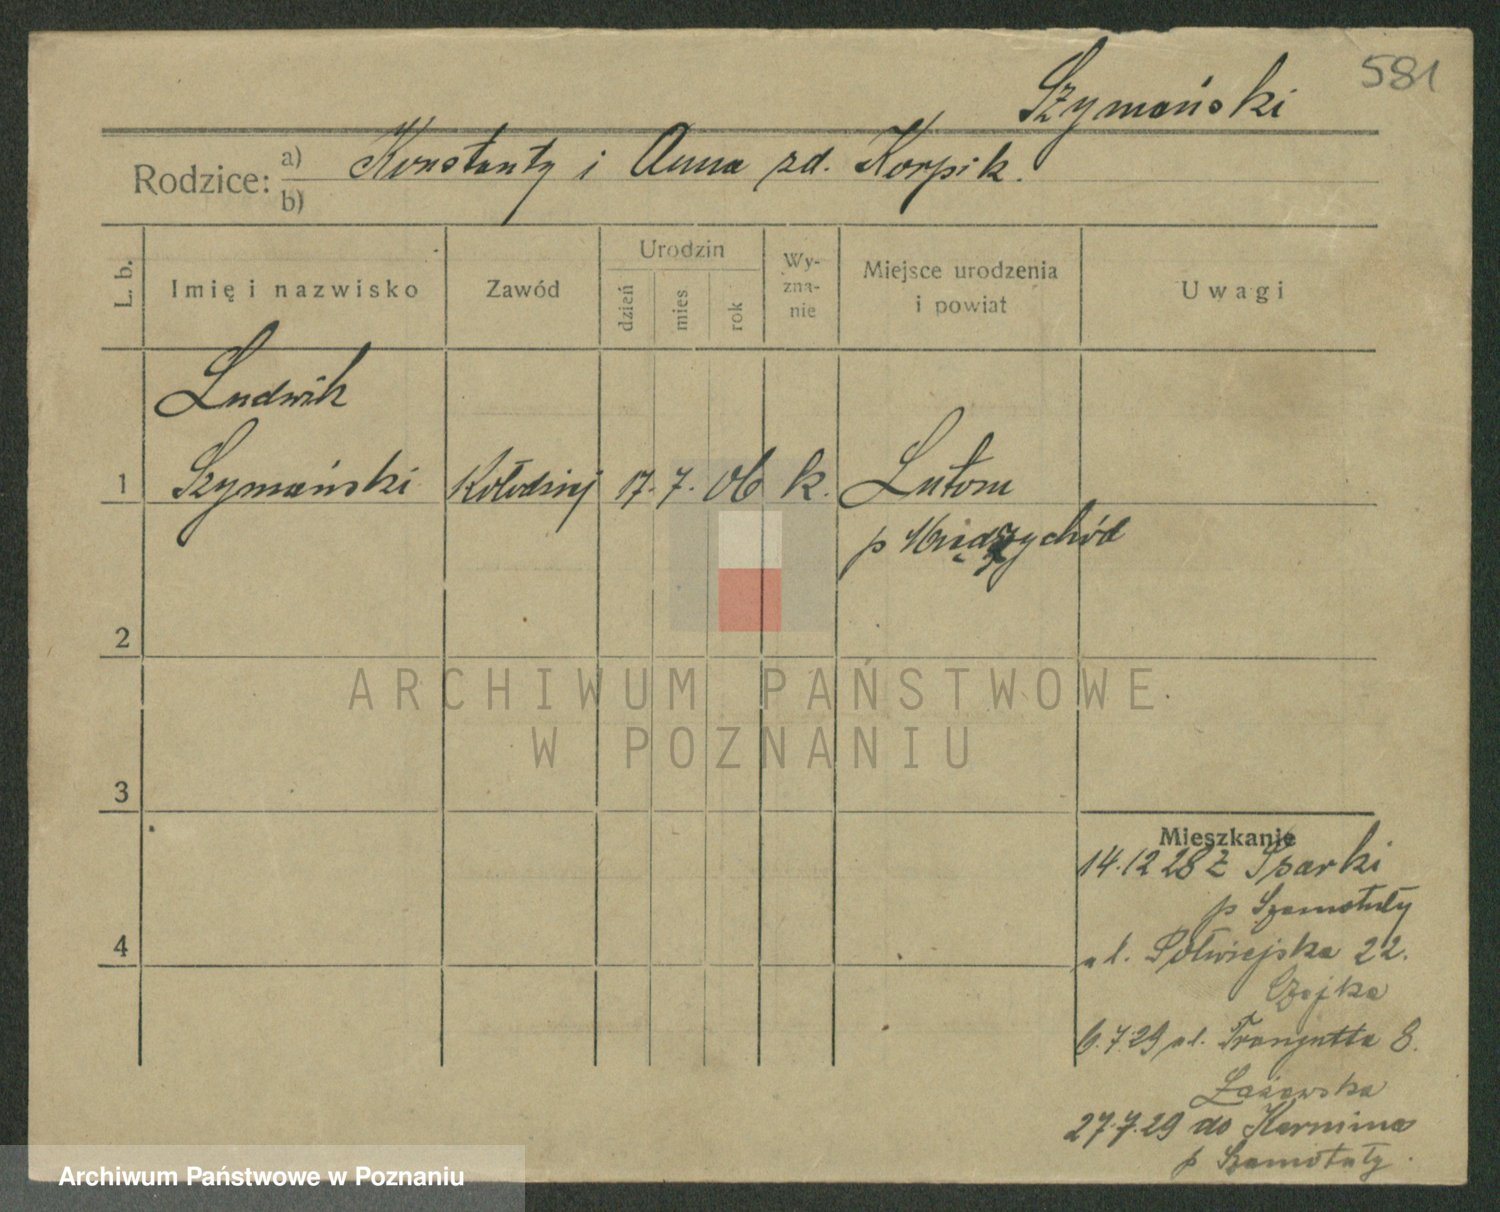 581
Szymański
Rodzice: a) Konstanty i Anna zd. Korpik.
b)
L. b.
Imię i nazwisko
Zawód
Urodzin
dzień
mies.
rok
Wy-
zna-
nie
Miejsce urodzenia
i powiat
Uwagi
Ludwik
1 Szymański Kołodziej 17. 7. 06 k. Lutom
p Międzychód
2
ARCHIWUM PAŃSTWOWE
W POZNANIU
3
Mieszkanie
14.12 28 z
p Szamotuły
4
ul. Półwiejska 22.
Czajka
6.7.29 ul. Traugutta 8.
27.7.29 do
p Szamotuły.
Archiwum Państwowe w Poznaniu